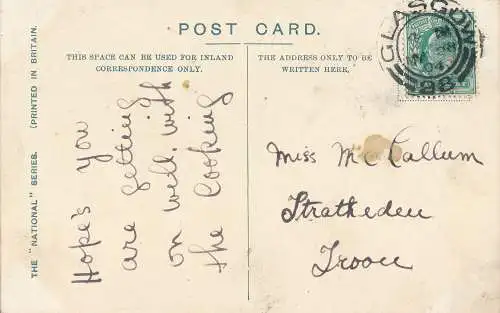 POST CARD.
THIS SPACE CAN BE USED FOR INLAND
CORRESPONDENCE ONLY.
THE ADDRESS ONLY TO BE
WRITTEN HERE.
THE "NATIONAL" SERIES. (PRINTED IN BRITAIN.
Hope's you
are getting
on well. with
the Cooking
Miss McCallum
Stratheden
Troon
GLASGOW
98